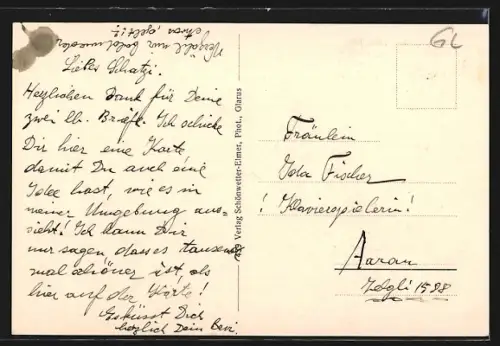 Vergiss mir bald wieder
schreiben, gelt!?
Lieber Schatzi.
Herzlichen Dank für Deine
zwei lb. Briefe. Ich schicke
Dir hier eine Karte
damit Du auch eine
Idee hast, wie es in
meiner Umgebung aus-
sieht! Ich kann Dir
nur sagen, dass es tausend
mal schöner ist, als
hier auf der Karte!
Es küsst Dich
herzlich Dein
Verlag Schönwetter-Elmer, Phot., Glarus
GL
Fräulein
Ida Fischer
! Klavierspielerin!
Aarau
Zelgli 1598